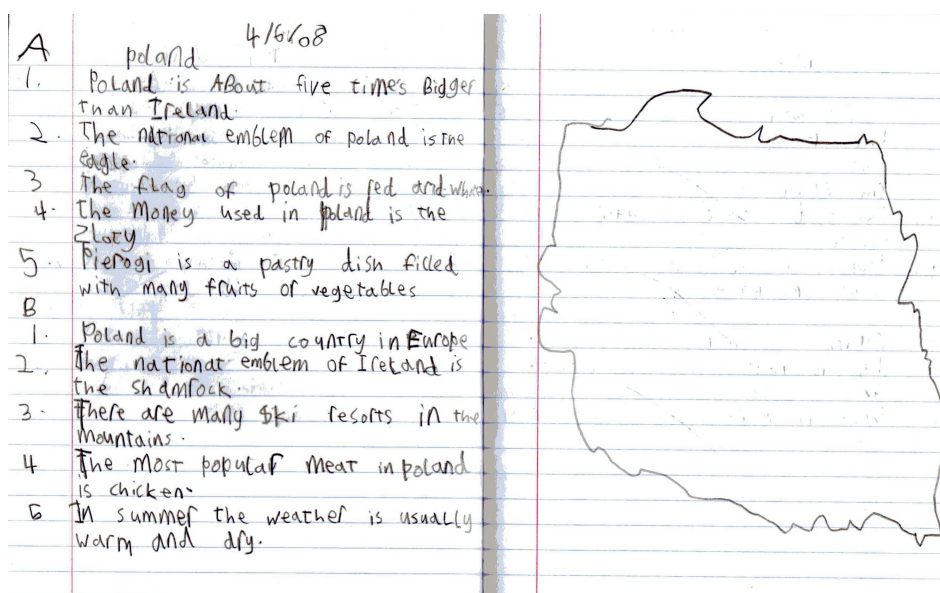 4/6/08
A
poland
1. Poland is About five time's Bigger
than Ireland.
2. The national emblem of poland is the
eagle.
3 The flag of poland is red and white.
4. the money used in poland is the
Zloty
5. Pierogi is a pastry dish filled
with many fruits or vegetables
B
1. Poland is a big country in Europe
2. the national emblem of Ireland is
the shamrock.
3. there are many ski resorts in the
mountains.
4 The most popular meat in poland
is chicken.
5 In summer the weather is usually
warm and dry.